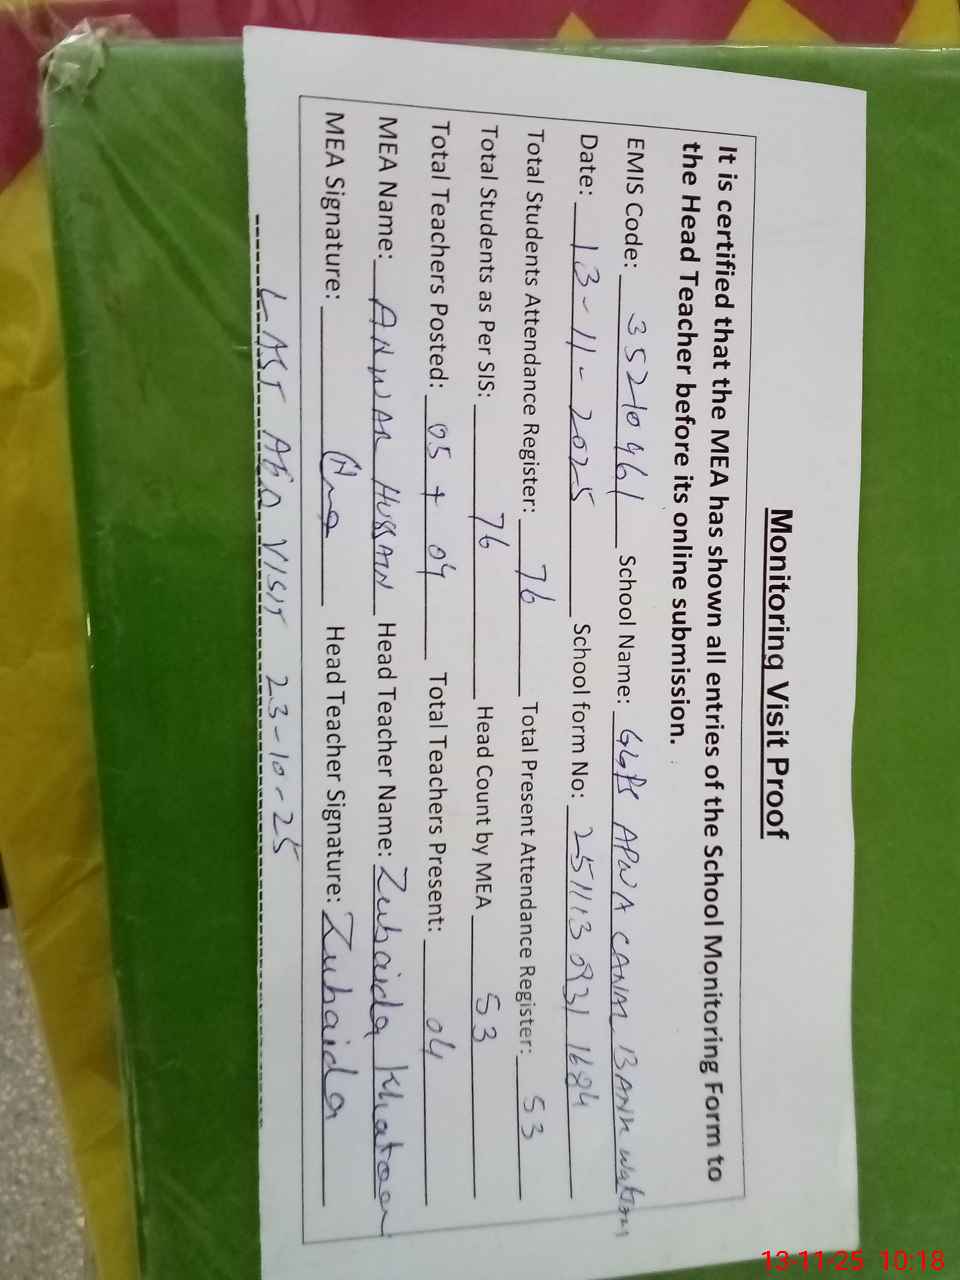 Monitoring Visit Proof
It is certified that the MEA has shown all entries of the School Monitoring Form to
the Head Teacher before its online submission.
EMIS Code: 35210461 School Name: GGPS APWA CANAL BANK
Date: 13-11-2025 School form No: 251113 0931 1684
Total Students Attendance Register: 76 Total Present Attendance Register: 53
Total Students as Per SIS: 76 Head Count by MEA 53
Total Teachers Posted: 05 + 04 Total Teachers Present: 04
MEA Name: ANWAR HUSSAIN Head Teacher Name: Zubaida Khatoon
MEA Signature: Head Teacher Signature: Zubaida
LAST AEO VISIT 23-10-25
13-11-25 10:18